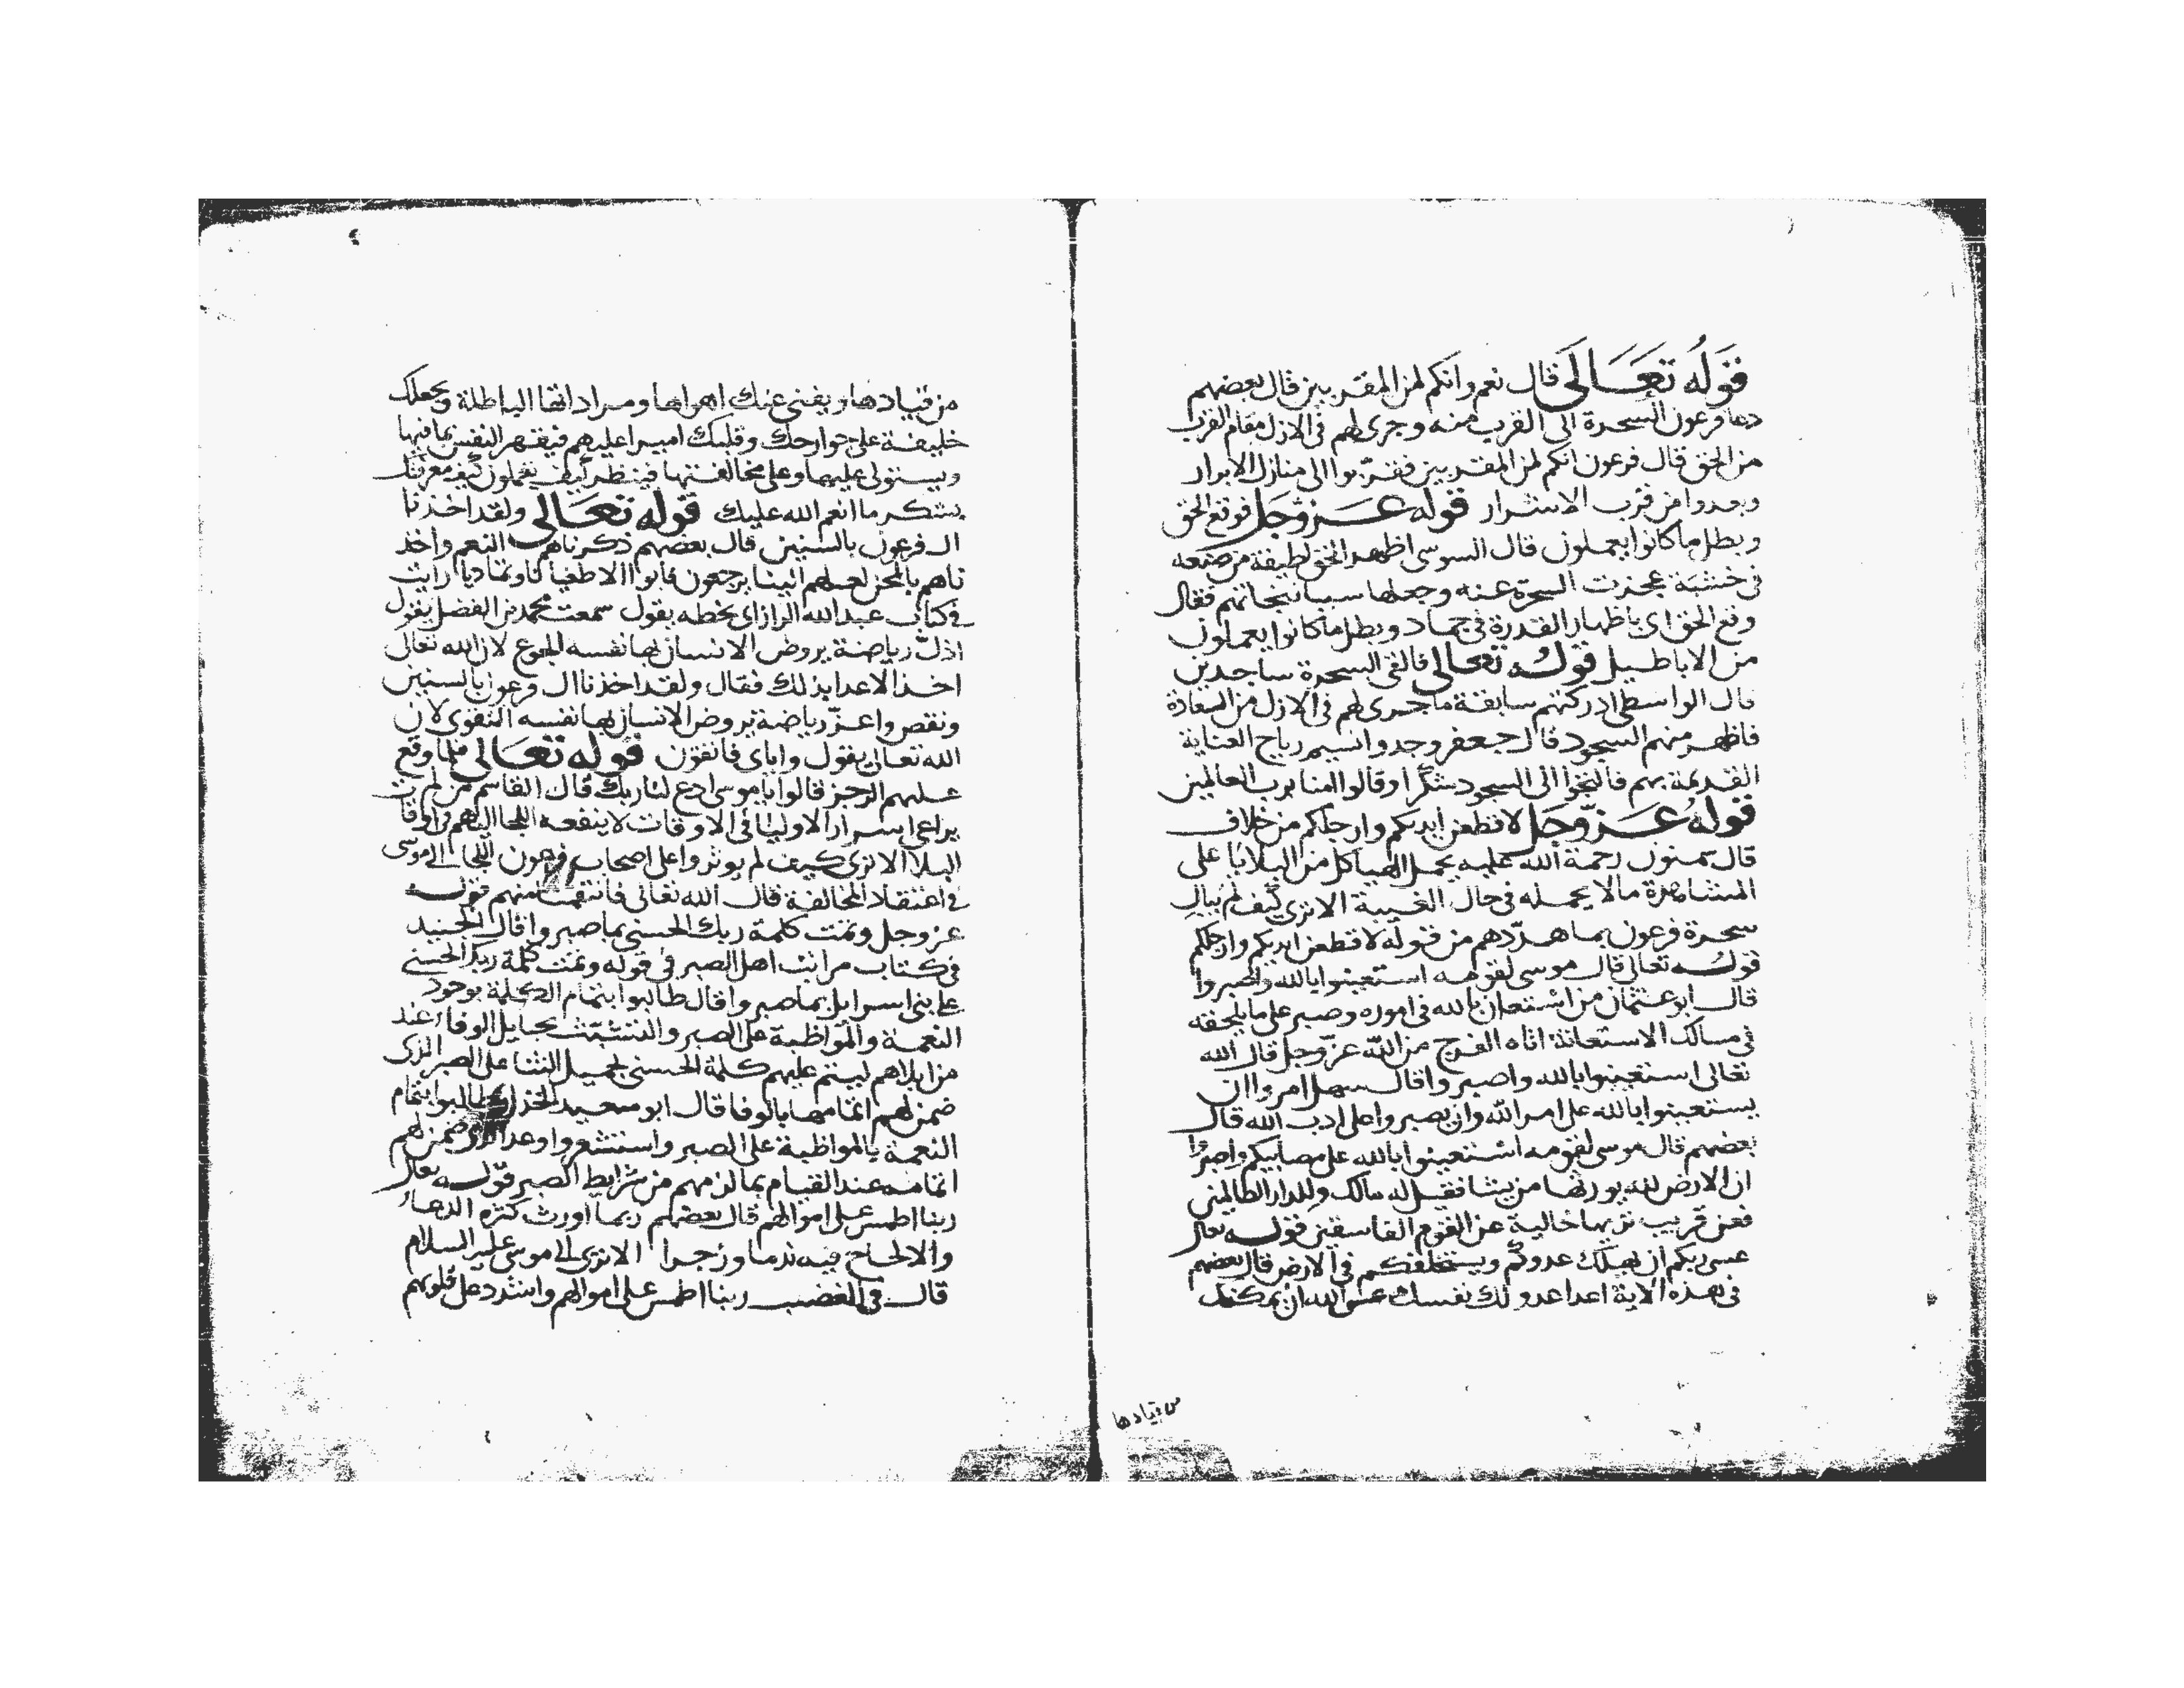 قوله تعالى قال نعم وانكم لمن المقربين قال بعضهم
دعا فرعون السحرة الى القرب منه وجرى لهم فى الازل مقام القرب
من الحق قال فرعون انكم لمن المقربين فقربوا الى منازل الابرار
وبعدوا من قرب الاشرار قوله عز وجل فوقع الحق
وبطل ما كانوا يعملون قال السوسى اظهر الحق لطيفة من صنعه
فى خشبة عجزت السحرة عنه وجعلها سببا لنجاتهم فقال
وقع الحق اى باظهار القدرة فى جماد وبطل ما كانوا يعملون
من الاباطيل قوله تعالى فالقى السحرة ساجدين
قال الواسطى ادركتهم سابقة ما جرى لهم فى الازل من السعادة
فاظهر منهم السجود قال جعفر وجدوا نسيم رياح العناية
القديمة بهم فالتجوا الى السجود شكرا وقالوا امنا برب العالمين
قوله عز وجل لاقطعن ايديكم وارجلكم من خلاف
قال سمنون رحمة الله عليه يحمل الهياكل من البلايا على
المشاهدة ما لا يحمله فى حال الغيبة الا ترى كيف لم يبال
سحرة فرعون بما هددهم من قوله لاقطعن ايديكم وارجلكم
قوله تعالى قال موسى لقومه استعينوا بالله واصبروا
قال ابو عثمان من استعان بالله فى اموره وصبر على ما يلحقه
فى مسالك الاستعانة اتاه الفرج من الله عز وجل قال الله
تعالى استعينوا بالله واصبروا قال سهل امروا ان
يستعينوا بالله على امر الله وان يصبروا على ادب الله قال
بعضهم قال موسى لقومه استعينوا بالله على مصايبكم واصبروا
ان الارض لله يورثها من يشا فقيل له مالك وللدار الظالمين
فعن قريب تريها خالية عن القوم الفاسقين قوله تعالى
عسى ربكم ان يهلك عدوكم ويستخلفكم فى الارض قال بعضهم
فى هذه الاية اعدا عدو لك نفسك عسى الله ان يمكنك
من قيادها
من قيادها ويفنى عنك اهواها ومراداتها الباطلة ويجعلك
خليفة على جوارحك وقلبك اميرا عليهم فيقهر النفس بما فيها
ويستولى عليها وعلى مخالفتها فينظر كيف تعملون كيف معرفتك
بشكر ما انعم الله عليك قوله تعالى ولقد اخذنا
ال فرعون بالسنين قال بعضهم ذكرناهم النعم واخذ
ناهم بالمحن لعلهم الينا يرجعون فابوا الا طغيانا وتماديا رايت
فى كتاب عبد الله الرازى بخطه يقول سمعت محمد بن الفضل يقول
اذل رياضة يروض الانسان بها نفسه الجوع لان الله تعالى
اخذ الاعدا بذلك فقال ولقد اخذنا ال فرعون بالسنين
ونقص واعز رياضة يروض الانسان بها نفسه التقوى لان
الله تعالى يقول واياى فاتقون قوله تعالى فلما وقع
عليهم الرجز قالوا يا موسى ادع لنا ربك قال القاسم من لم
يراعى اسرار الاوليا فى الاوقات لا ينفعه اللجا اليهم فى اوقات
البلا الا ترى كيف لم يوثروا على اصحاب فرعون اللجا الى موسى
فى اعتقاد المخالفة قال الله تعالى فانتقمنا منهم قوله
عز وجل وتمت كلمة ربك الحسنى بما صبروا قال الجنيد
فى كتاب مراتب اهل الصبر فى قوله وتمت كلمة ربك الحسنى
على بنى اسرايل بما صبروا قال طالبوا بتمام الكلمة بوجود
النعمة والمواظبة على الصبر والتشبث بحبايل الوفاء عند
من ابلاهم ليتم عليهم كلمة الحسنى لجميل الثنا على الصبر الذى
ضمن لهم اتمامها بالوفا قال ابو سعيد الخراز طالبوا بتمام
النعمة بالمواظبة على الصبر واستشعروا وعد الذى ضمن لهم
اتمامه عند القيام بما لزمهم من شرايط الصبر قوله تعالى
ربنا اطمس على اموالهم قال بعضهم ربما اورث كثرة الدعاء
والالحاح فيه ندما وزجرا الا ترى الى موسى عليه السلام
قال فى الغضب ربنا اطمس على اموالهم واشدد على قلوبهم